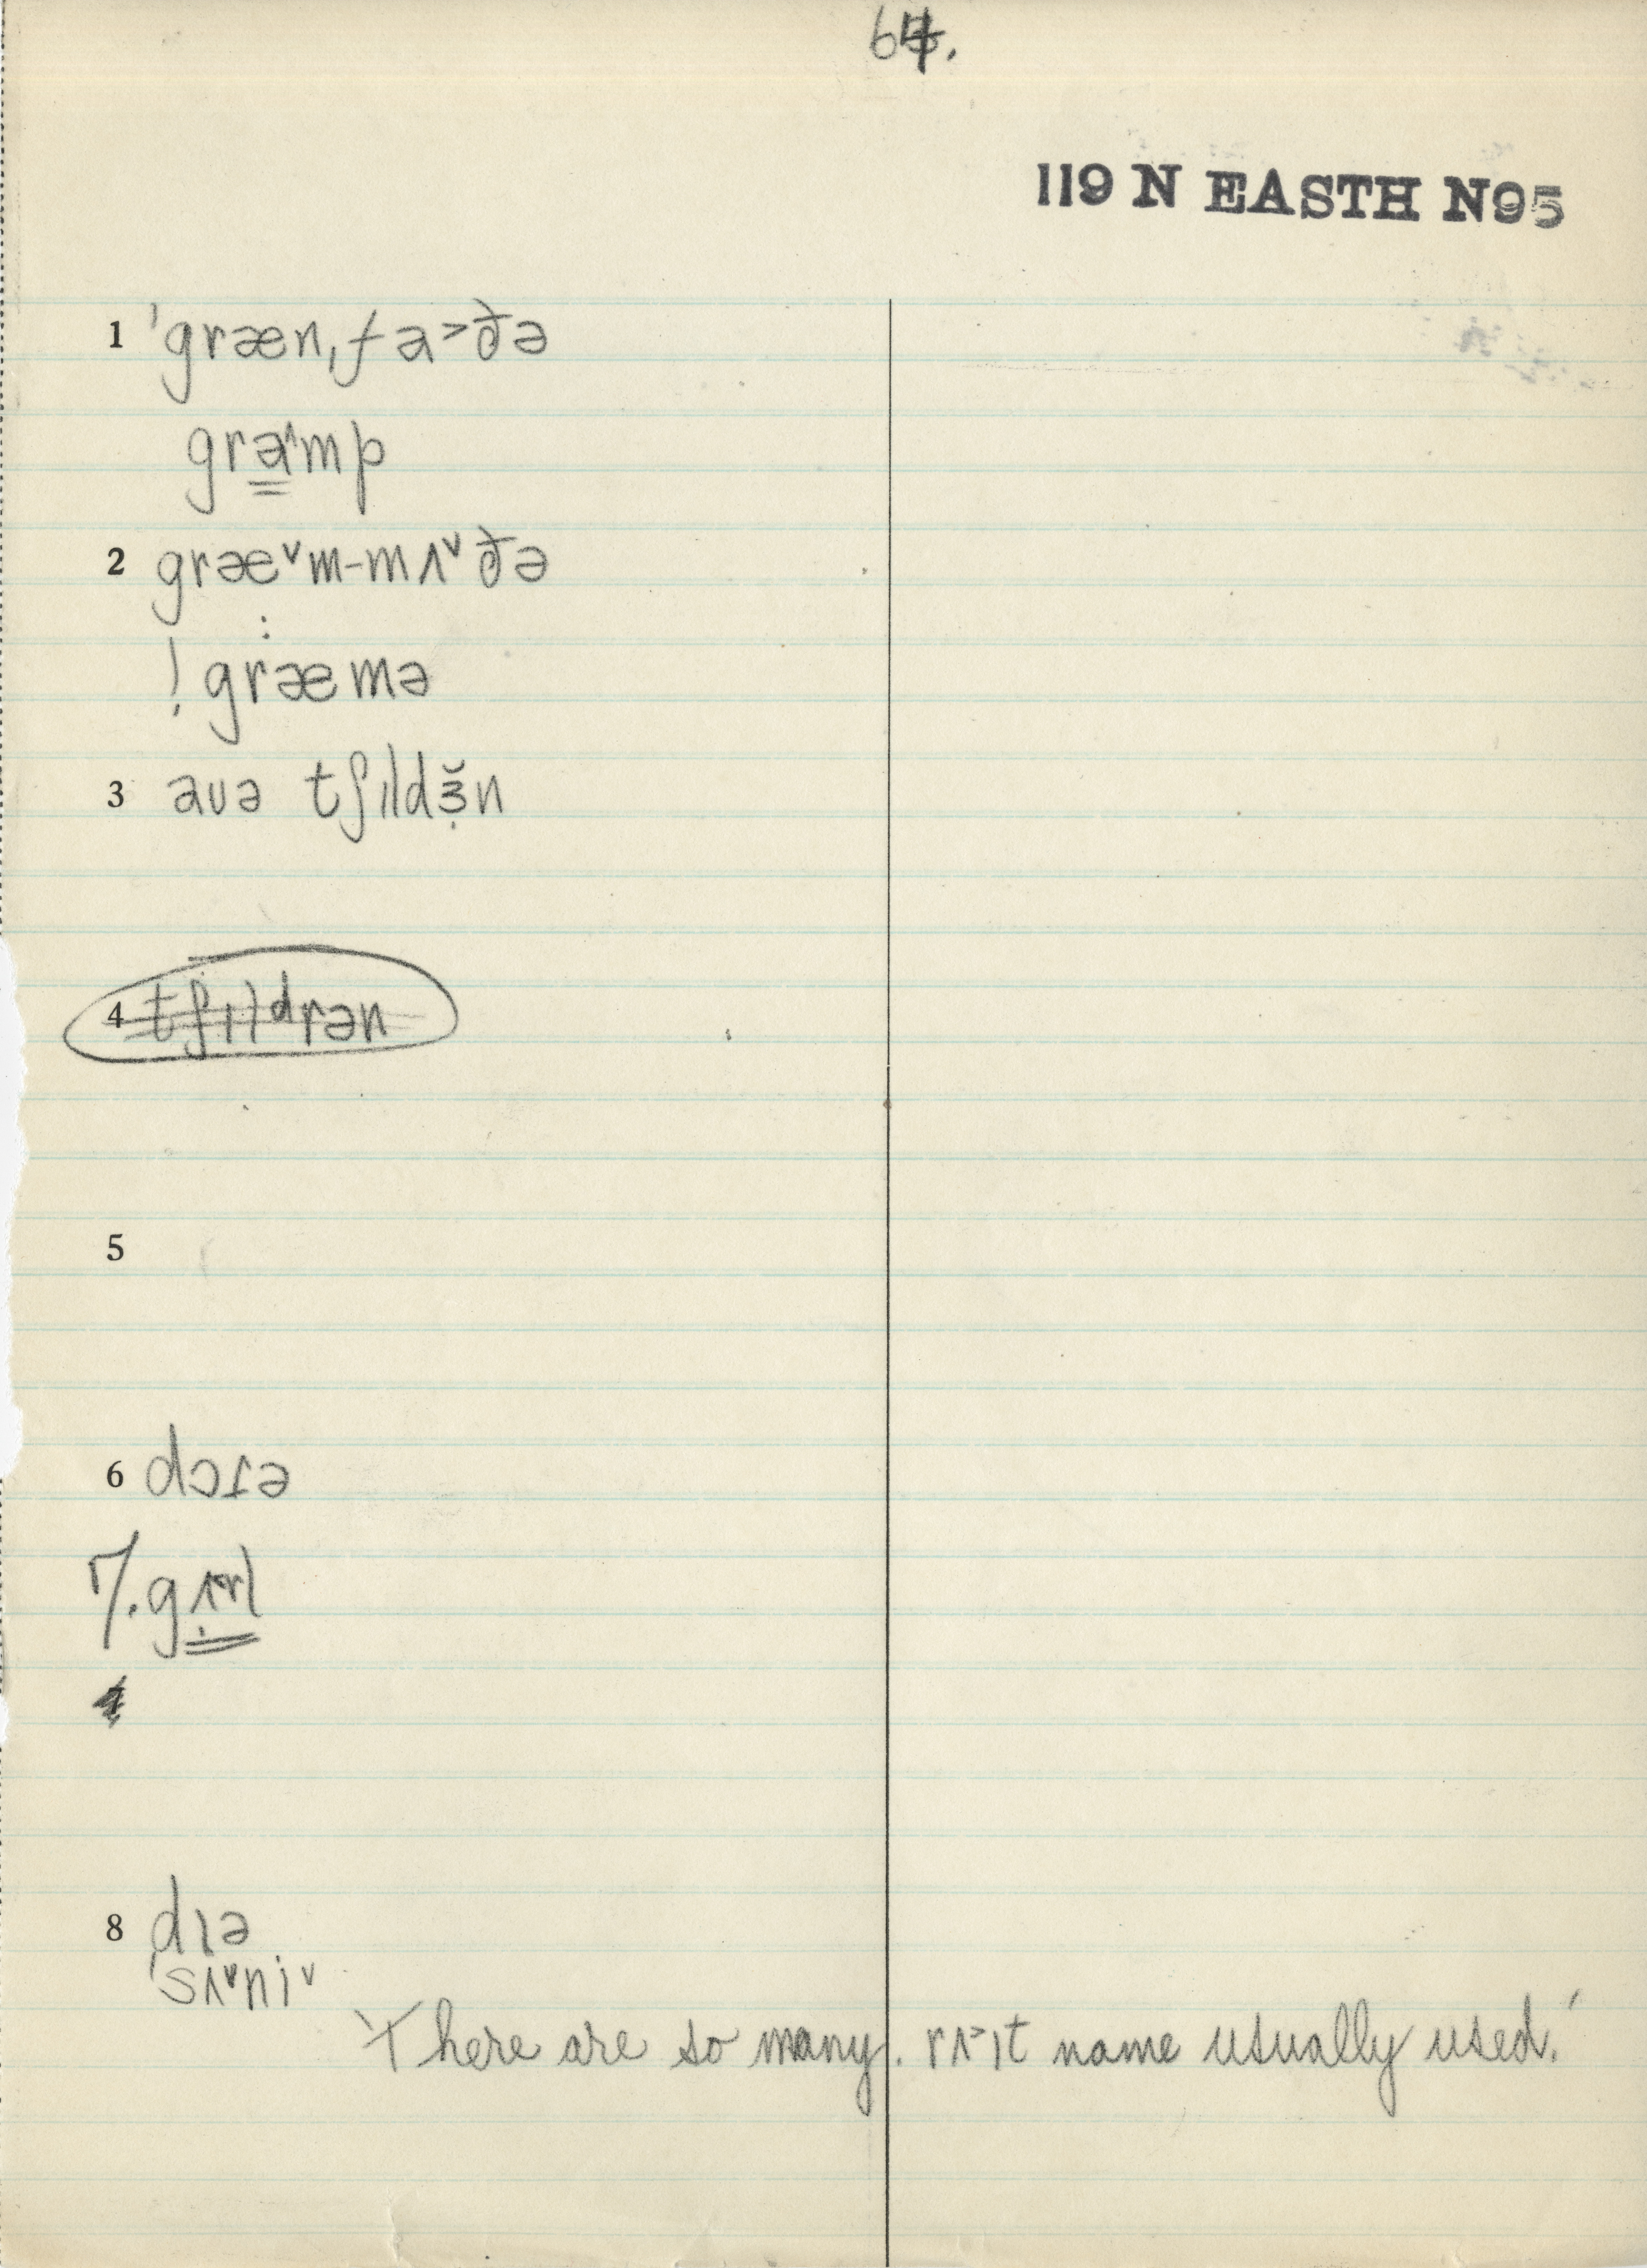 64.
119 N EASTH N95
1 ˈgræn,fa˃ðə
gra˄mp
2 græ˅m-mʌ˅ðə
! græ:mə
3 auə tʃɪldɜ̣̆n
4 tʃɪldrən
5
6 dɔɾə
7. gʌ̣rl
8 dɪə
ˈsʌ˅ni˅
'There are so many. rʌ˃ɪt name usually used.'